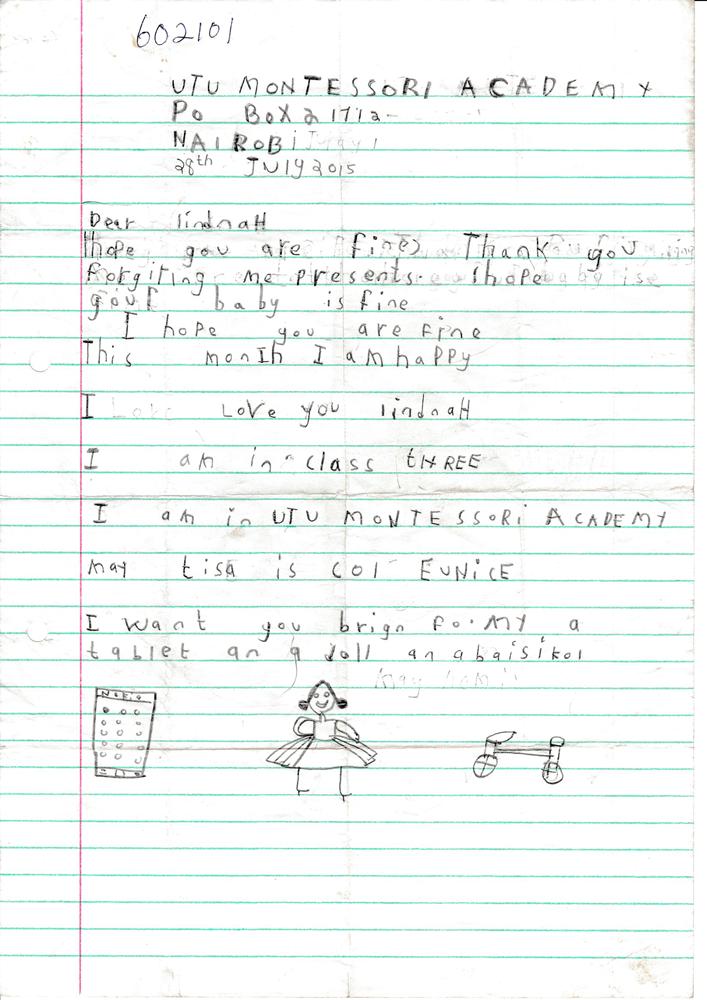 602101
UTU MONTESSORI ACADEMY
Po BoX 21712-
NAIROBi
28th JUlY 2015
Dear lindnaH
Ihope you are fine) Thank you
forgiting me presents. Ihope
your baby is fine
I hope you are fine
This month I am happy
I Love Love you lindnaH
I am in class tHREE
I am in UTU MONTESSORi ACADEMY
may tisa is col EUNiCE
I want you brign fo.MY a
tablet an a doll an abaisikol
may nam